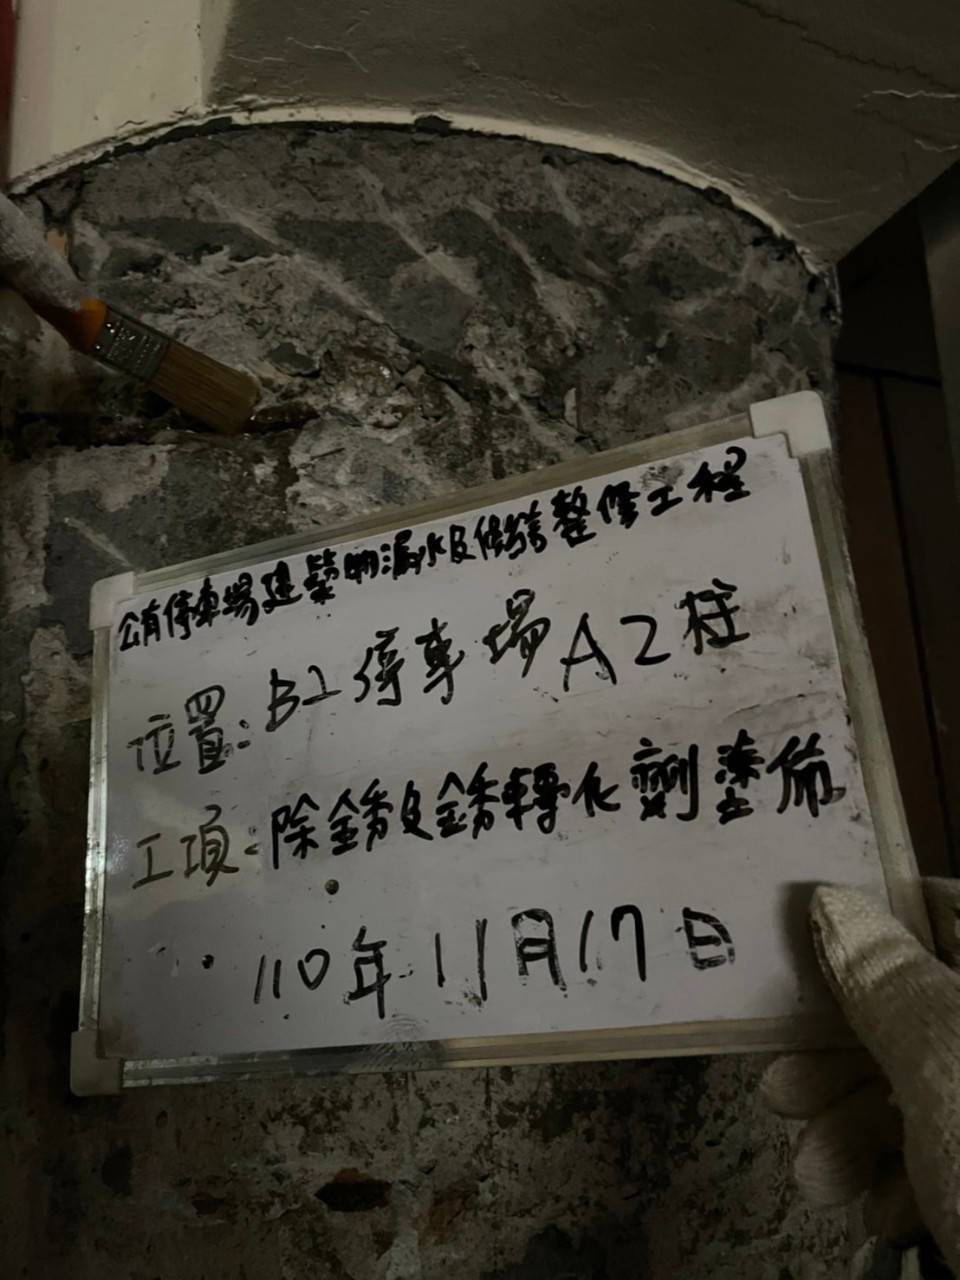 公有停車場建築物漏水及修繕整修工程
位置:B2停車場A2柱
工項:除銹及銹轉化劑塗佈
110年11月17日